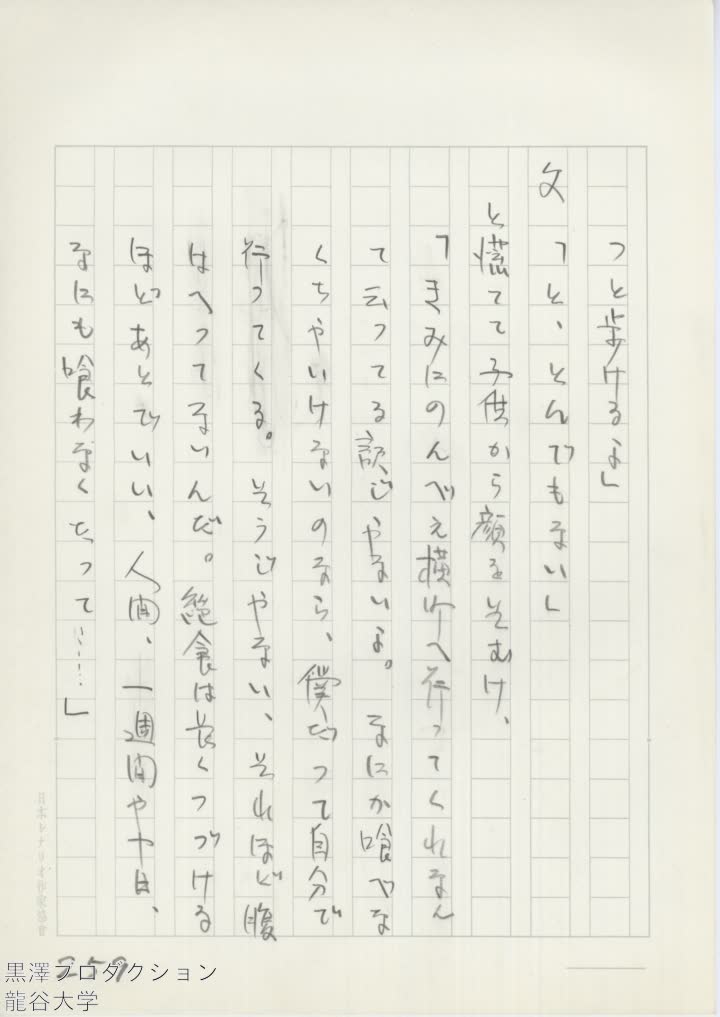 つと歩けるよ」
父「と、とんでもない」
と慌てて子供から顔をそむけ、
「きみにのんべえ横丁へ行ってくれなん
て云ってる訳じゃないよ。なにか喰べな
くちゃいけないのなら、僕だって自分で
行ってくる。そうじゃない、それほど腹
はへってないんだ。絶食は長くつづける
ほどあとでいい、人間、一週間や十日、
なにも喰わなくたって……」
日本シナリオ作家協會
259
黒澤プロダクション
龍谷大学